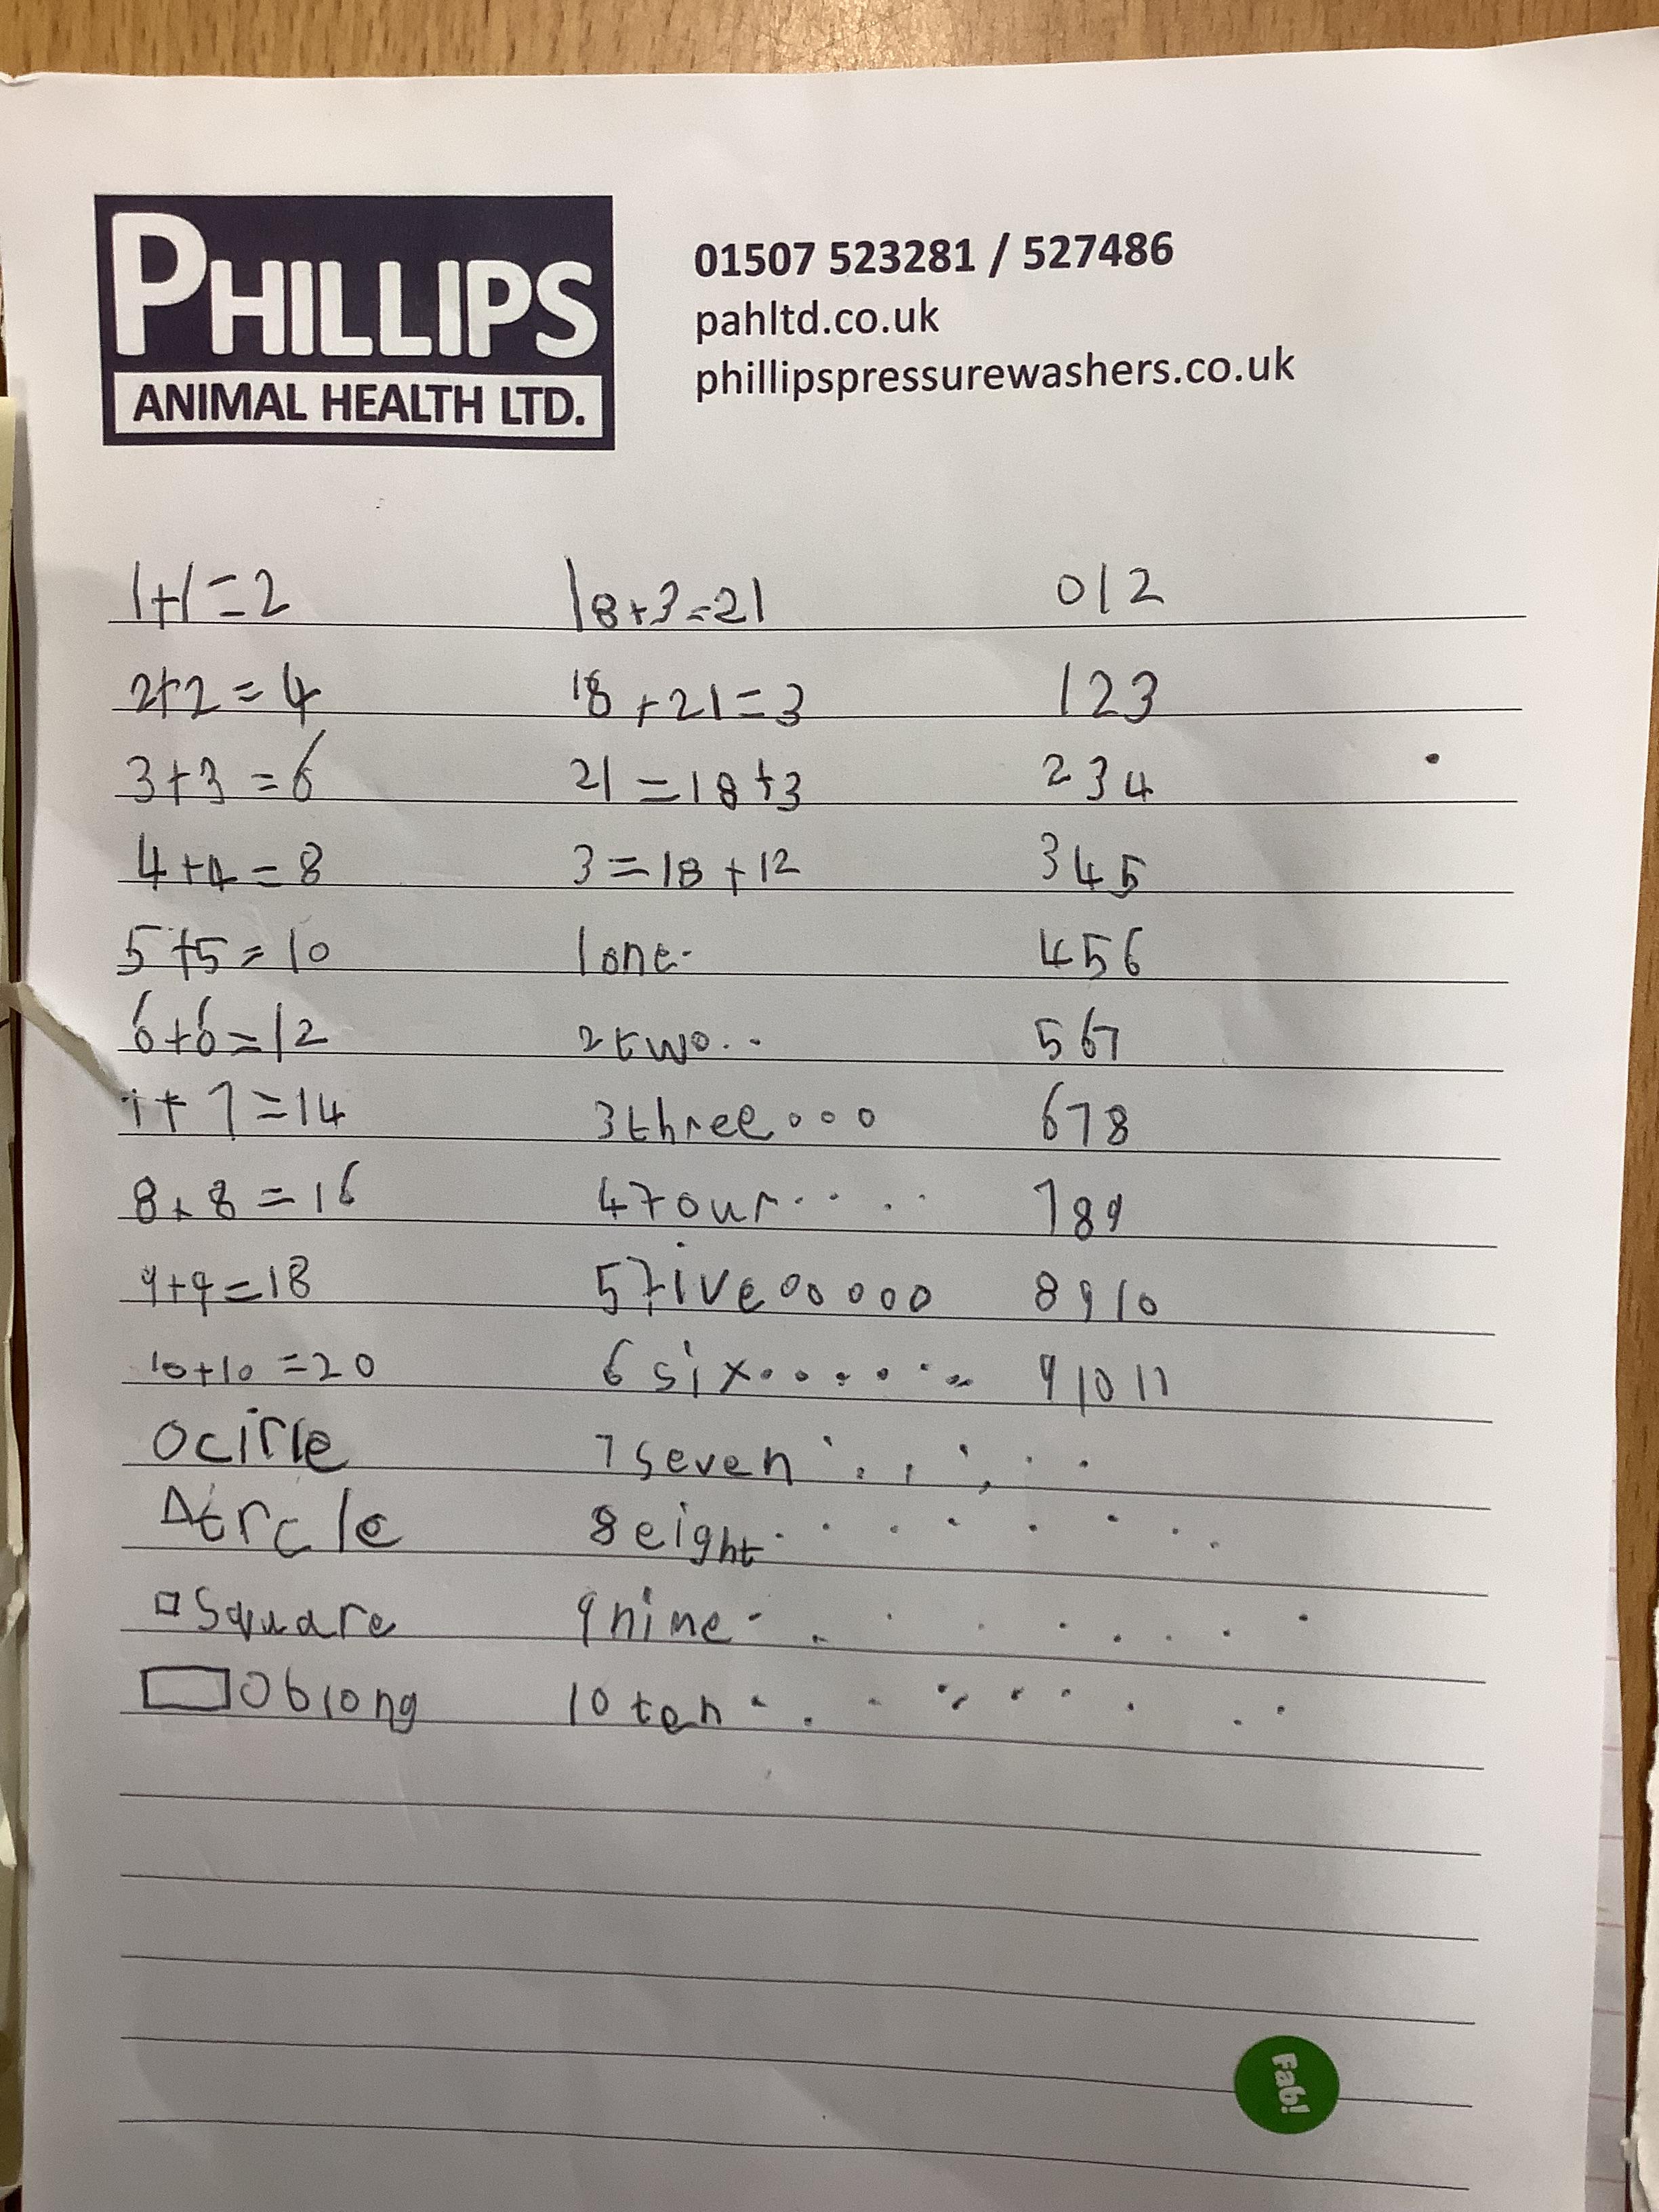 PHILLIPS
ANIMAL HEALTH LTD.
01507 523281 / 527486
pahltd.co.uk
phillipspressurewashers.co.uk
1+1=2 18+3=21 012
2+2=4 18+21=3 123
3+3=6 21=18+3 234
4+4=8 3=18+12 345
5+5=10 1one. 456
6+6=12 2two.. 567
7+7=14 3three ooo 678
8+8=16 4four.... 789
9+9=18 5five ooooo 8910
10+10=20 6six....... 91011
ocirle 7seven.......
△trcle 8eight........
□square 9nine.........
▭oblong 10ten..........
Fab!